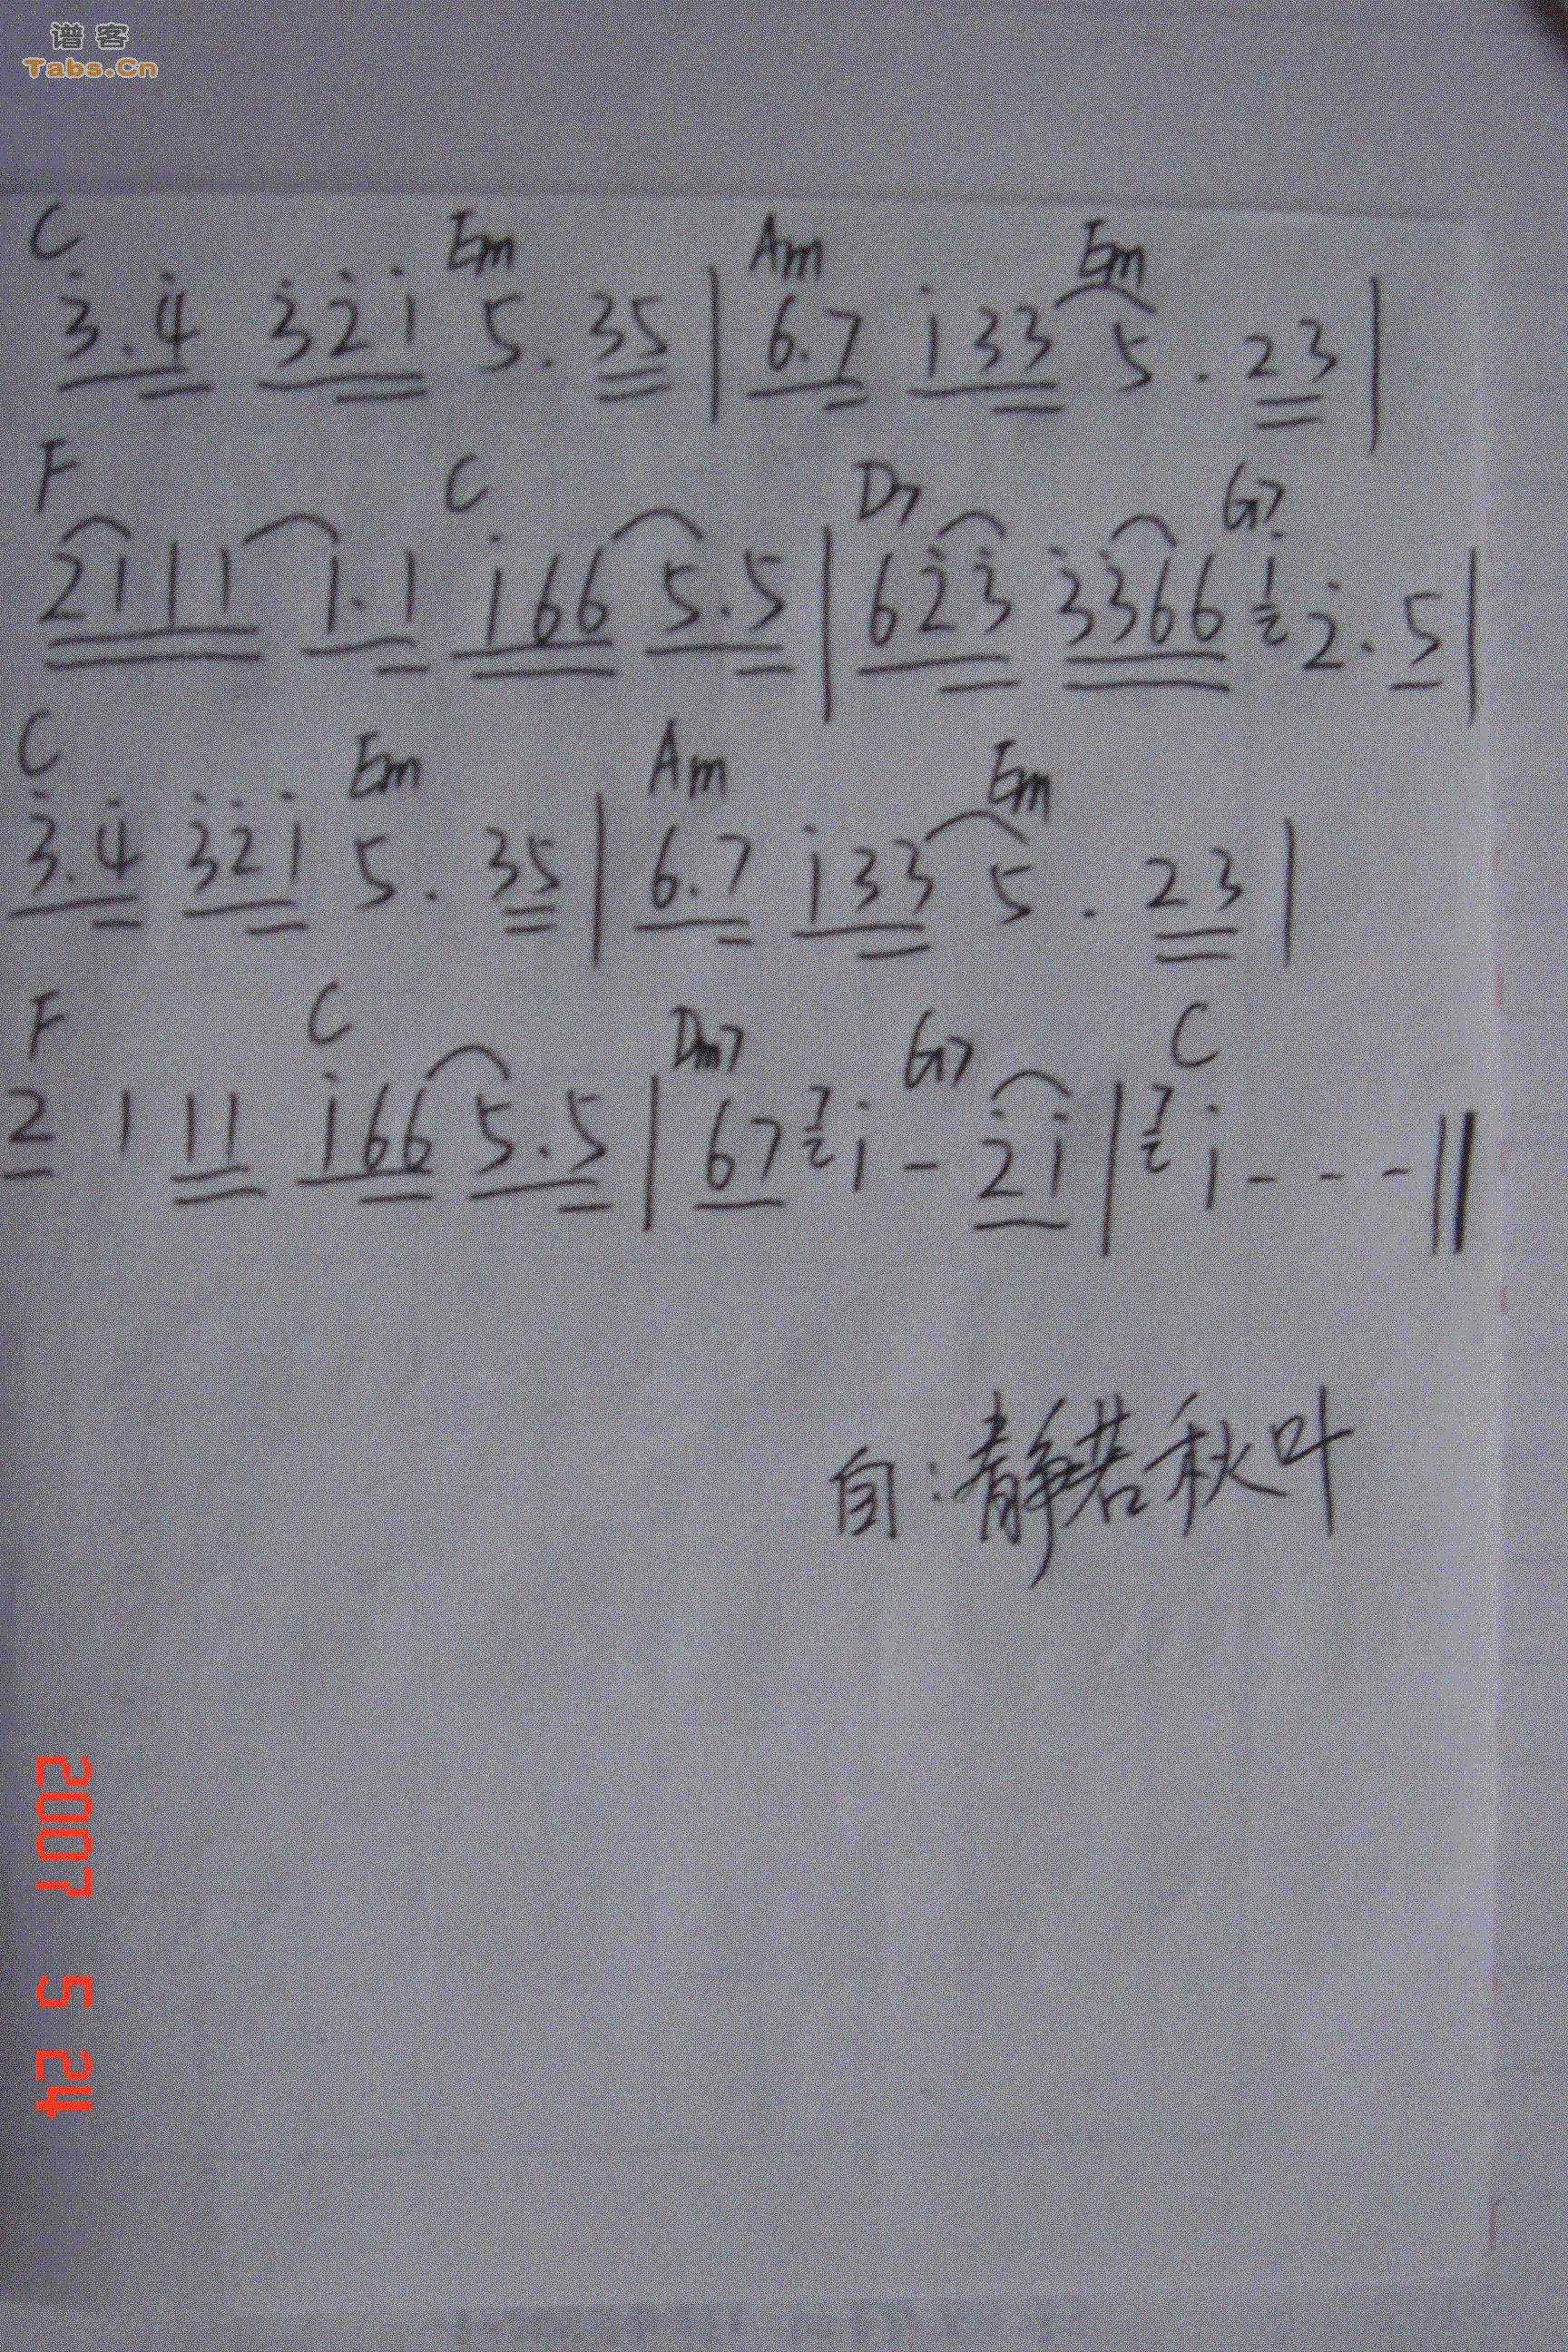 谱客
Tabs.Cn
C Em Am Em
3̇.4̇ 3̇2̇1̇ 5. 35 | 6.7 1̇33 5. 23 |
F C D7 G7
2111 1.1 1̇66 5.5 | 62̇3̇ 3̇3̇66 1̇ 2̇. 5 |
C Em Am Em
3̇.4̇ 3̇2̇1̇ 5. 35 | 6.7 1̇33 5. 23 |
F C Dm7 G7 C
2 1 11 1̇66 5.5 | 67 7 1̇ - 2̇1̇ | 7 1̇ - - - ||
自:静若秋叶
2007 5 24